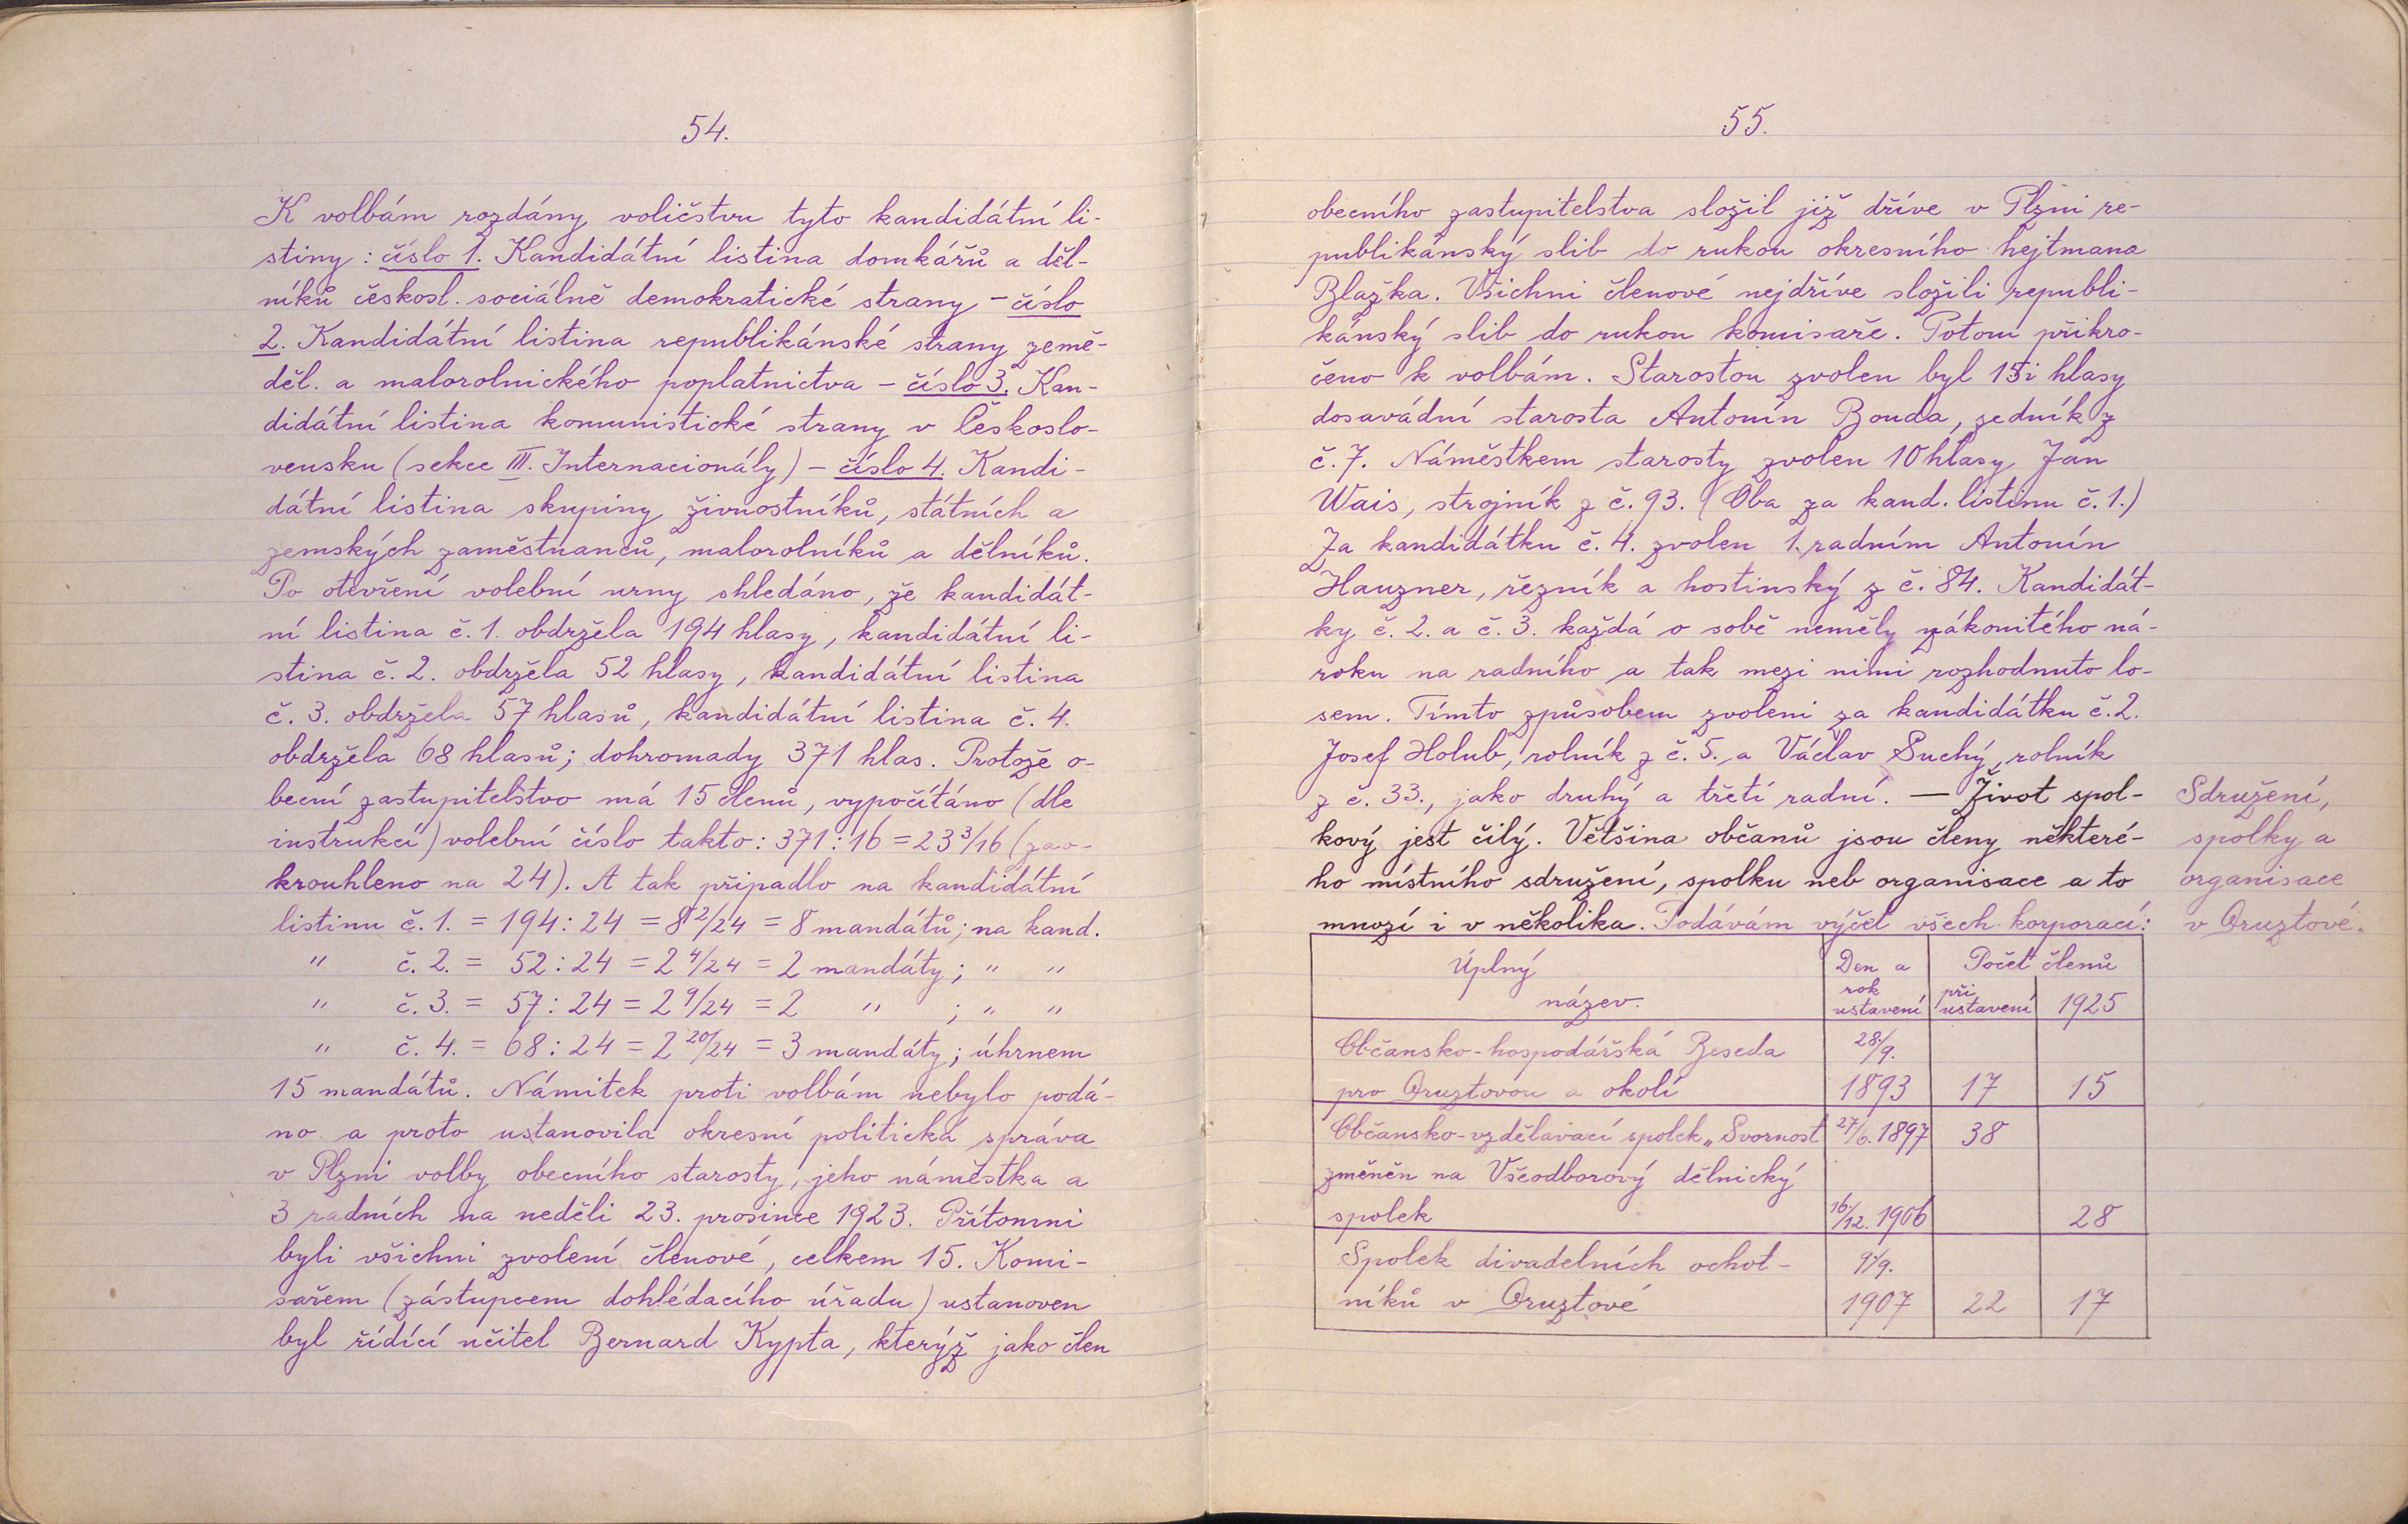 54.
K volbám rozdány voličstvu tyto kandidátní li-
stiny: číslo 1. Kandidátní listina domkářů a děl-
níků českosl. sociálně demokratické strany – číslo
2. Kandidátní listina republikánské strany země-
děl. a malorolnického poplatnictva – číslo 3. Kan-
didátní listina komunistické strany v Českoslo-
vensku (sekce III. Internacionály) – číslo 4. Kandi-
dátní listina skupiny živnostníků, státních a
zemských zaměstnanců, malorolníků a dělníků.
Po otevření volební urny shledáno, že kandidát-
ní listina č. 1. obdržela 194 hlasy, kandidátní li-
stina č. 2. obdržela 52 hlasy, kandidátní listina
č. 3. obdržela 57 hlasů, kandidátní listina č. 4.
obdržela 68 hlasů; dohromady 371 hlas. Protože o-
becní zastupitelstvo má 15 členů, vypočítáno (dle
instrukcí) volební číslo takto: 371 : 16 = 23 3/16 (zao-
krouhleno na 24). A tak připadlo na kandidátní
listinu č. 1. = 194 : 24 = 8 2/24 = 8 mandátů; na kand.
" č. 2. = 52 : 24 = 2 4/24 = 2 mandáty; " "
" č. 3. = 57 : 24 = 2 9/24 = 2 " ; " "
" č. 4. = 68 : 24 = 2 20/24 = 3 mandáty; úhrnem
15 mandátů. Námitek proti volbám nebylo podá-
no a proto ustanovila okresní politická správa
v Plzni volby obecního starosty, jeho náměstka a
3 radních na neděli 23. prosince 1923. Přítomni
byli všichni zvolení členové, celkem 15. Komi-
sařem (zástupcem dohlédacího úřadu) ustanoven
byl řídící učitel Bernard Kypta, kterýž jako člen
55.
obecního zastupitelstva složil již dříve v Plzni re-
publikánský slib do rukou okresního hejtmana
Blažka. Všichni členové nejdříve složili republi-
kánský slib do rukou komisaře. Potom přikro-
čeno k volbám. Starostou zvolen byl 15i hlasy
dosavádní starosta Antonín Bouda, zedník z
č. 7. Náměstkem starosty zvolen 10 hlasy Jan
Wais, strojník z č. 93. (Oba za kand. listinu č. 1.)
Za kandidátku č. 4. zvolen 1. radním Antonín
Hauzner, řezník a hostinský z č. 84. Kandidát-
ky č. 2. a č. 3. každá o sobě neměly zákonitého ná-
roku na radního a tak mezi nimi rozhodnuto lo-
sem. Tímto způsobem zvoleni za kandidátku č. 2.
Josef Holub, rolník z č. 5., a Václav Suchý, rolník
z č. 33., jako druhý a třetí radní. — Život spol-
kový jest čilý. Většina občanů jsou členy některé-
ho místního sdružení, spolku neb organisace a to
mnozí i v několika. Podávám výčet všech korporací:
Sdružení,
spolky a
organisace
v Druztové.
Úplný název. Den a rok ustavení Počet členů při ustavení 1925
Občansko-hospodářská Beseda 28./9.
pro Druztovou a okolí 1893 17 15
Občansko-vzdělavací spolek „Svornost 27/6. 1897 38
změněn na Všeodborový dělnický
spolek 16./12. 1906 28
Spolek divadelních ochot- 9./9.
níků v Druztové 1907 22 17